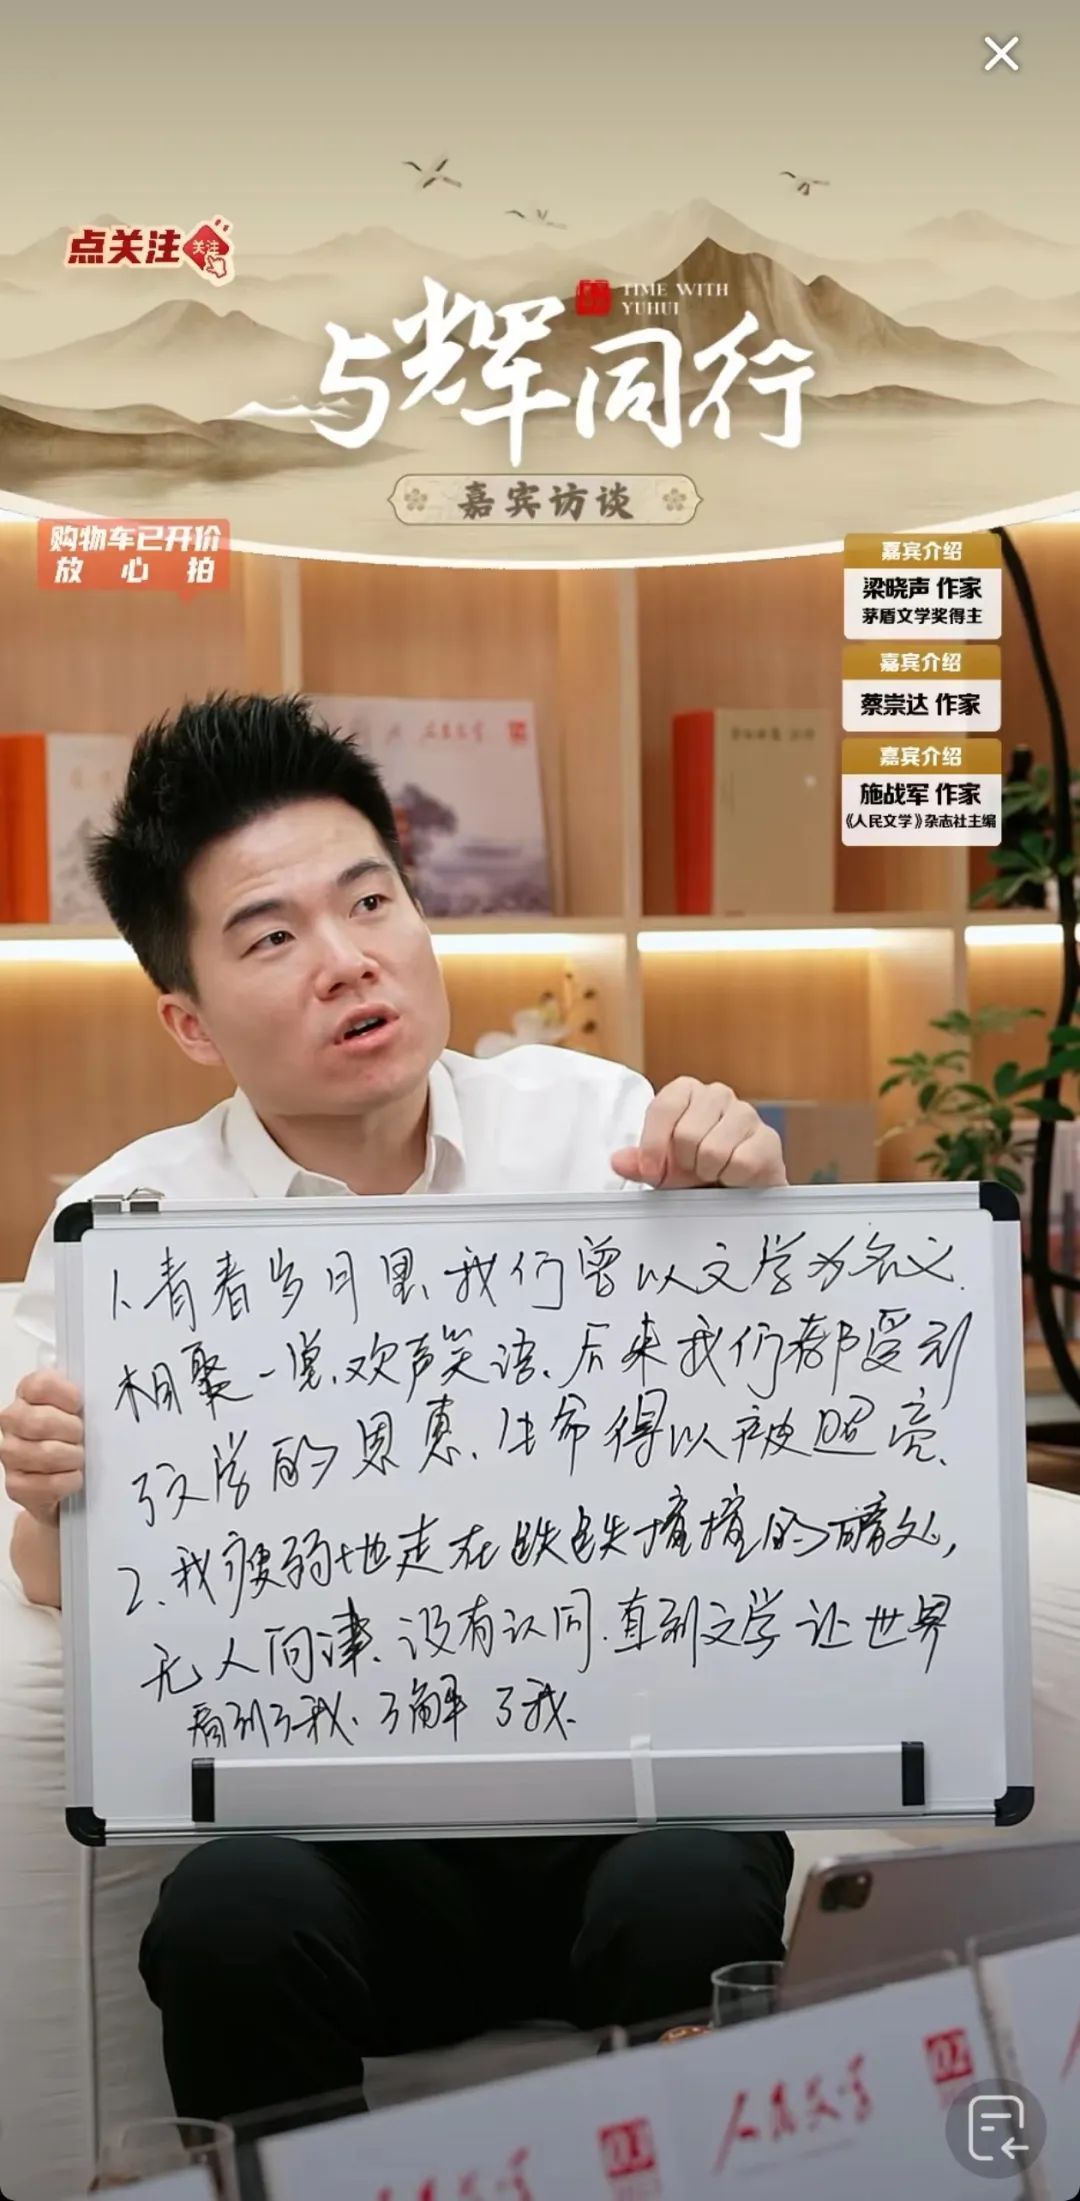 点关注
关注
TIME WITH
YUHUI
与辉同行
嘉宾访谈
购物车已开价
放心拍
嘉宾介绍
梁晓声 作家
茅盾文学奖得主
嘉宾介绍
蔡崇达 作家
嘉宾介绍
施战军 作家
《人民文学》杂志社主编
人民文学
1、青春岁月里、我们曾以文学为名义、
相聚一堂、欢声笑语、后来我们都受到
了文学的恩惠、生命得以被照亮、
2、我疲弱地走在跌跌撞撞的暗处,
无人问津、没有认同、直到文学让世界
看到了我、了解了我、
人民文学
02
人民文学